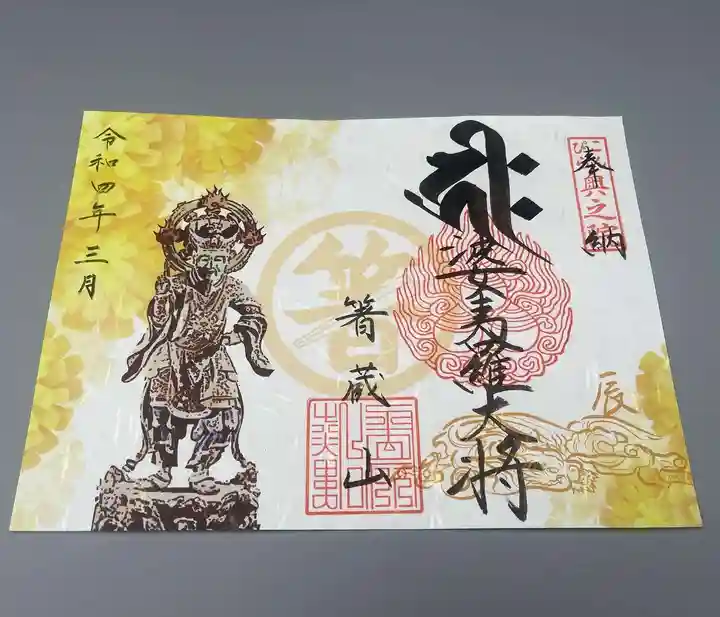 奉納
婆夷羅大将
辰
箸
箸蔵山
令和四年三月